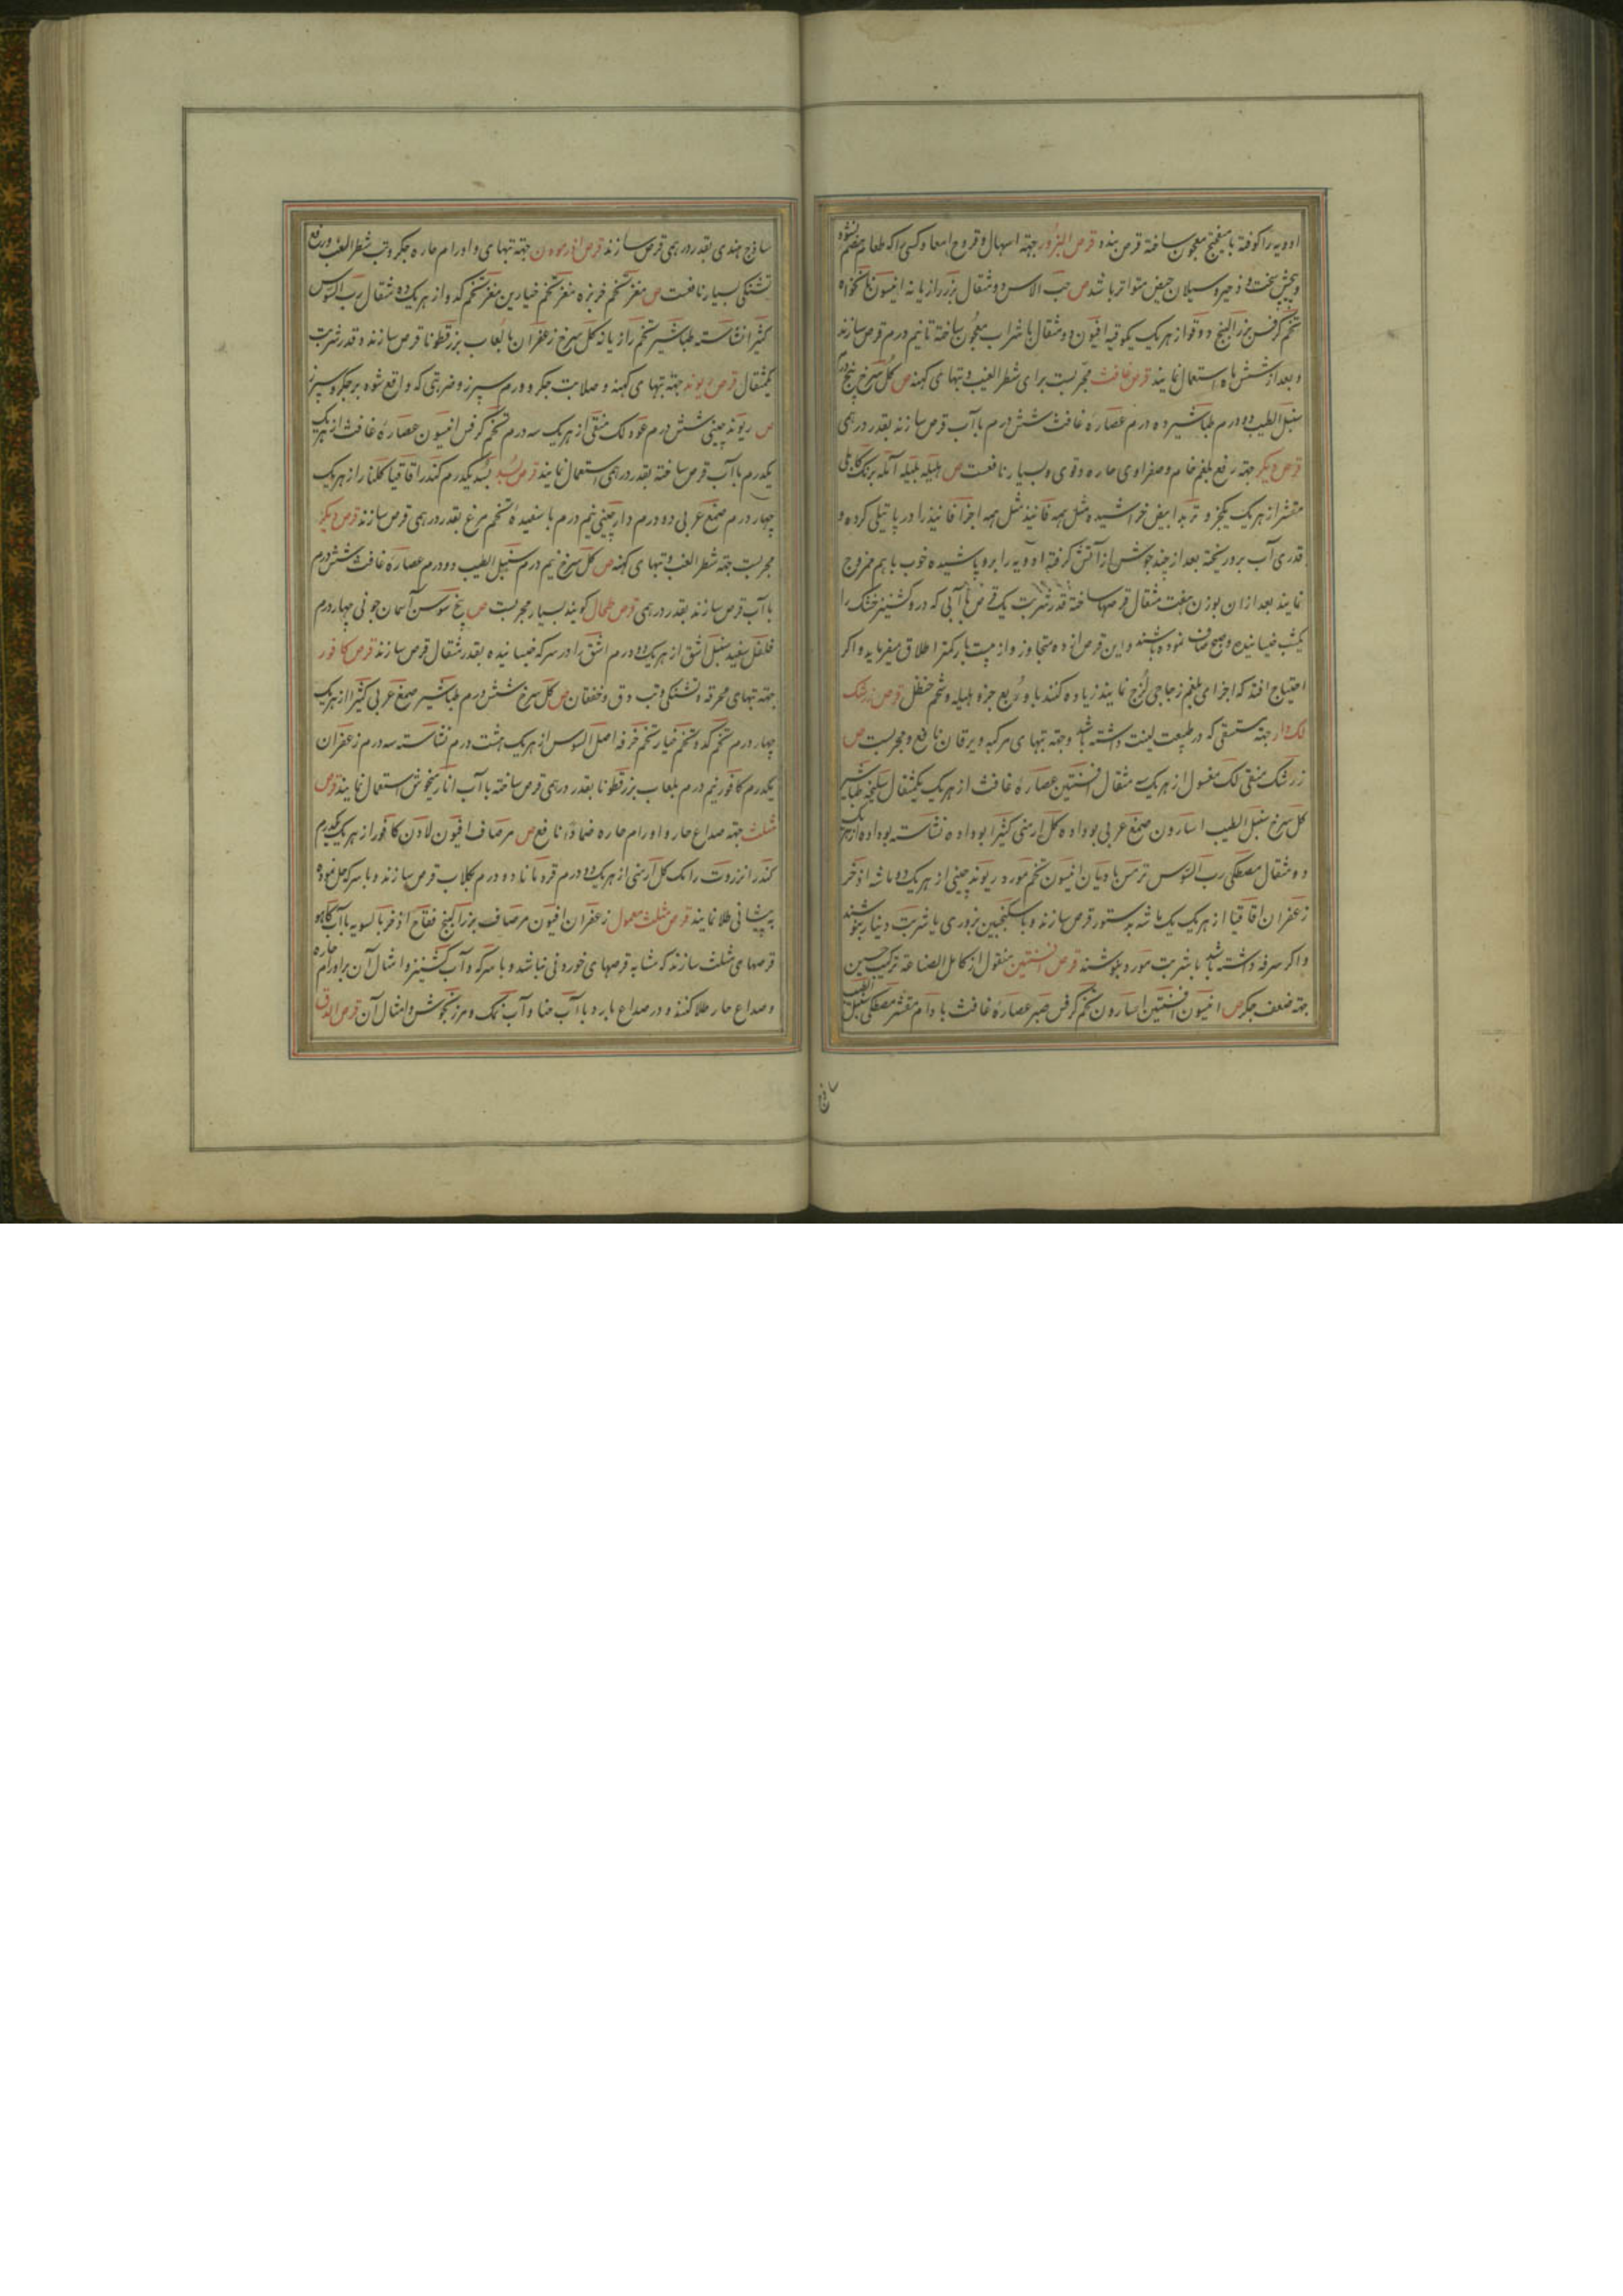 ادویه را کوفته با میفختج معجون ساخته قرص بندند قرص البزور جهته اسهال و قروح امعا و کسی را که طعام هضم نشود
و پیچش سخت و زحیر و سیلان حیض متواتر باشد ص حب الاس دو مثقال بزر رازیانه انیسون نانخواه
تخم کرفس بزر البنج دوقو از هریک یکوقیه افیون دو مثقال با شراب معجون ساخته تا نیم درم قرص سازند
و بعد از شش ماه استعمال نمایند قرص غافث مجربست برای شطر الغب و تبهای کهنه ص کل سرخ پنج درم
سنبل الطیب دو درم طباشیر ده درم عصاره غافث شش درم با آب قرص سازند بقدر درهمی
قرص دیکر جهته رفع بلغم خام و صفراوی حاره و قوی و بسیار نافعست ص هلیله بلیله آمله برنک کابلی
مقشر از هریک یکجزو تربد ابیض خراشیده مثل همه فانیذ مثل همه اجزا فانیذ را در پاتیلی کرده و
قدری آب برو ریخته بعد از چند جوش از آتش کرفته ادویه را برو پاشیده خوب با هم ممزوج
نمایند بعد ازان بوزن هفت مثقال قرصها ساخته قدر شربت یک قرص با آبی که درو کشنیز خشک را
یکشب خیسانیده و صبح صاف نموده باشند و این قرص از ده متجاوز و از بیست بار کمتر اطلاق میفرماید و اکر
احتیاج افتد که اجزای بلغم زجاجی لزج نمایند زیاده کنند باو ربع جزو هلیله و شحم حنظل قرص زرشک
لک دار جهته مستسقی که در طبیعت لینت داشته باشد و جهته تبهای مرکبه و یرقان نافع و مجربست ص
زرشک منقی لک مغسول از هریک سه مثقال افسنتین عصاره غافث از هریک یکمثقال سلیخه طباشیر
کل سرخ سنبل الطیب اسارون صمغ عربی بوداده کل ارمنی کثیرا بوداده نشاسته بوداده از هریک
دو مثقال مصطکی رب السوس ترمس بادیان انیسون تخم مورد ریوند چینی از هریک دو ماشه اذخر
زعفران اقاقیا از هریک یک ماشه بدستور قرص سازند و با سکنجبین بزوری یا شربت دینار بنوشند
و اکر سرفه داشته باشد با شربت مورد بنوشند قرص افسنتین منقول از کامل الصناعة ترکیب حسین
جهته ضعف جکر ص انیسون افسنتین اسارون تخم کرفس صبر عصاره غافث بادام مقشر مصطکی سنبل الطیب
ساذج هندی بقدر درهمی قرص سازند قرص جهته تبهای و اورام حاره جکر و تب شطر الغب و رفع
تشنکی بسیار نافعست ص مغز تخم خربزه مغز تخم خیارین مغز تخم کدو از هریک ده مثقال رب السوس
کثیرا نشاسته طباشیر تخم رازیانه کل سرخ زعفران با لعاب بزرقطونا قرص سازند و قدر شربت
یکمثقال قرص ریوند جهته تبهای کهنه و صلابت جکر و ورم سپرز و ضربتی که واقع شود بر جکر و سپرز
ص ریوند چینی شش درم عود لک منقی از هریک سه درم تخم کرفس انیسون عصاره غافث از هریک
یکدرم با آب قرص ساخته بقدر درهمی استعمال نمایند قرص بسد بسد یکدرم کندر اقاقیا کلنار از هریک
چهار درم صمغ عربی دو درم دارچینی نیم درم با سفیده تخم مرغ بقدر درهمی قرص سازند قرص دیکر
مجربست جهته شطر الغب و تبهای کهنه ص کل سرخ نیم درم سنبل الطیب دو درم عصاره غافث شش درم
با آب قرص سازند بقدر درهمی قرص طحال کویند بسیار مجربست ص بیخ سوسن آسمان جونی چهار درم
فلفل سفید سنبل اشق از هریک دو درم اشق را در سرکه خیسانیده بقدر مثقال قرص سازند قرص کافور
جهته تبهای محرقه و تشنکی و تب دق و خفقان ص کل سرخ شش درم طباشیر صمغ عربی کثیرا از هریک
چهار درم تخم کدو تخم خیار تخم خرفه اصل السوس از هریک هشت درم نشاسته سه درم زعفران
یکدرم کافور نیم درم بلعاب بزرقطونا بقدر درهمی قرص ساخته با آب انار میخوش استعمال نمایند قرص
مثلث جهته صداع حار و اورام حاره ضماداً نافع ص مر صاف افیون لادن کافور از هریک یکدرم
کندر انزروت رامک کل ارمنی از هریک دو درم قردمانا دو درم بکلاب قرص سازند و با سرکه حل نموده
به پیشانی طلا نمایند قرص مثلث معمول زعفران افیون مر صاف بزر البنج فقاح اذخر بالسویه با آب کاهو
قرصهای مثلث سازند که مشابه قرصهای خوردنی نباشد و با سرکه و آب کشنیز و امثال آن بر اورام حاره
و صداع حار طلا کنند و در صداع بارد با آب حنا و آب نمک و مرزنجوش و امثال آن قرص الدق